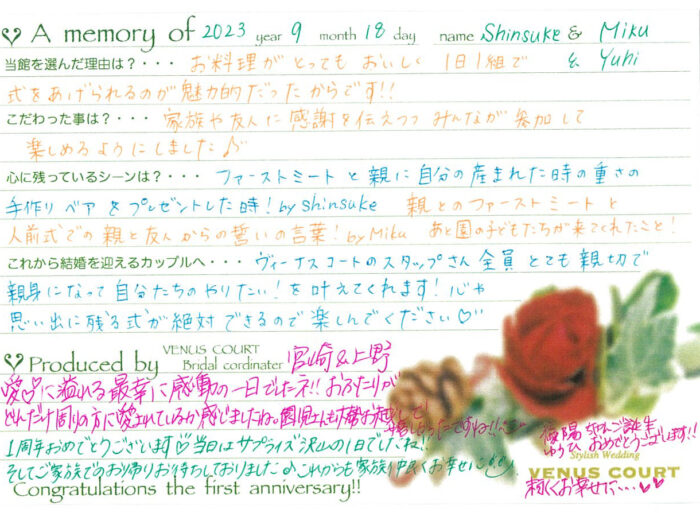 A memory of 2023 year 9 month 18 day name Shinsuke & Miku
& Yuhi
当館を選んだ理由は?・・・ お料理がとってもおいしく 1日1組で
式をあげられるのが魅力的だったからです!!
こだわった事は?・・・ 家族や友人に感謝を伝えつつ みんなが参加して
楽しめるようにしました♪
心に残っているシーンは?・・・ ファーストミートと親に自分の産まれた時の重さの
手作りベアをプレゼントした時! by Shinsuke 親とのファーストミートと
人前式での親と友人からの誓いの言葉! by Miku あと園の子どもたちが来てくれたこと!
これから結婚を迎えるカップルへ・・・ ヴィーナスコートのスタッフさん全員とても親切で
親身になって自分たちのやりたい!を叶えてくれます!心や
思い出に残る式が絶対できるので楽しんでください♡
Produced by VENUS COURT Bridal cordinater 宮崎&上野
愛♡に溢れる最幸に感動の一日でしたネ!! おふたりが
どんだけ周りの方に愛されているか感じましたね。園児さんも
1周年おめでとうございます♡当日はサプライズ沢山の1日でしたね!!
そしてご家族でのお帰りお待ちしておりました♪これからも家族仲良くお幸せに
陽ちゃんご誕生
ゆうひ おめでとうございます!!
Stylish Wedding
VENUS COURT
末永くお幸せに…♡♡
Congratulations the first anniversary!!